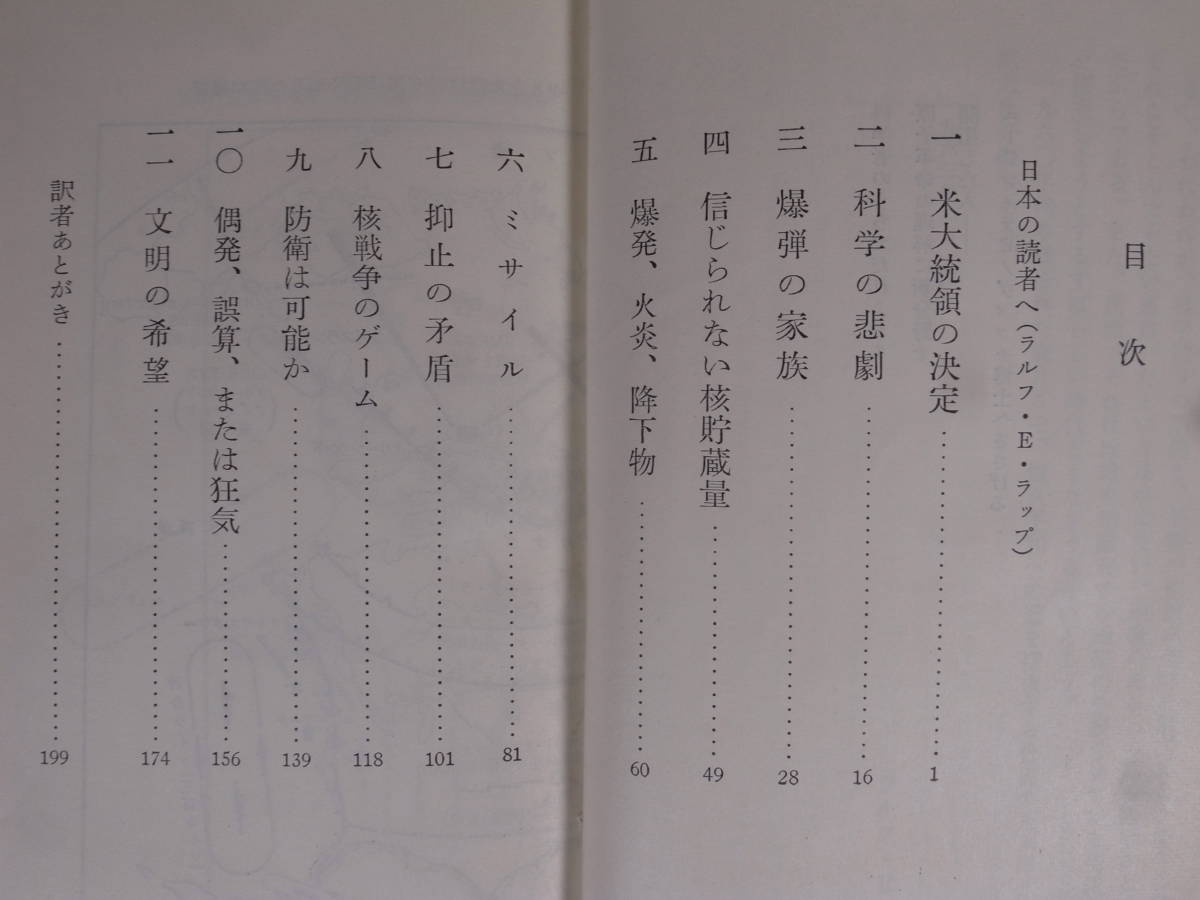 目次
日本の読者へ(ラルフ・E・ラップ)
一 米大統領の決定……………………1
二 科学の悲劇……………………16
三 爆弾の家族……………………28
四 信じられない核貯蔵量……………………49
五 爆発、火炎、降下物……………………60
六 ミサイル……………………81
七 抑止の矛盾……………………101
八 核戦争のゲーム……………………118
九 防衛は可能か……………………139
一〇 偶発、誤算、または狂気……………………156
一一 文明の希望……………………174
訳者あとがき……………………199